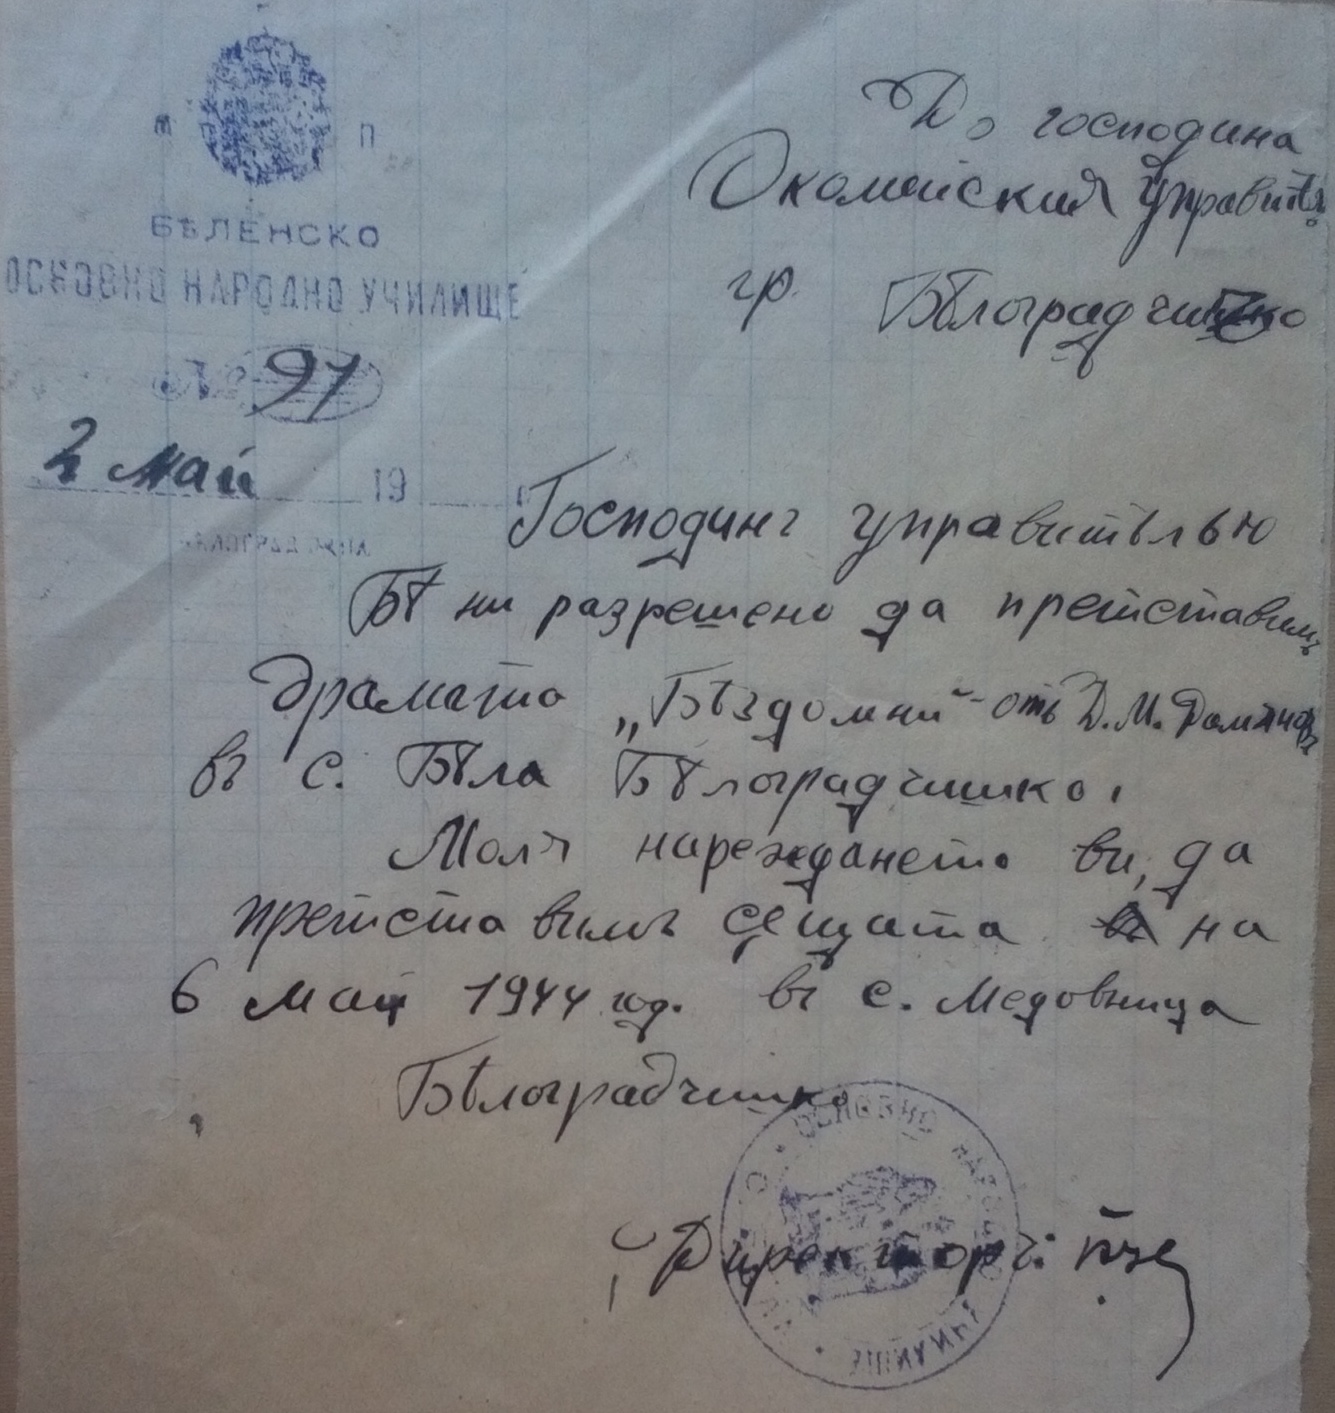 М П
БѢЛЕНСКО
ОСНОВНО НАРОДНО УЧИЛИЩЕ
№ 97
2 май 19
До господина
Околийския управитѣл
гр. Бѣлоградчишко
Господинъ управитѣлью
Бѣ ни разрешено да претставимъ
драмата „Бѣздомни“ отъ Д. М.
въ с. Бѣла Бѣлоградчишко.
Молъ нареждането ви, да
претставимъ сѫщата на
6 май 1944 год. въ с. Медовница
Бѣлоградчишко
ОСНОВНО НАРОДНО УЧИЛИЩЕ
Директоръ: